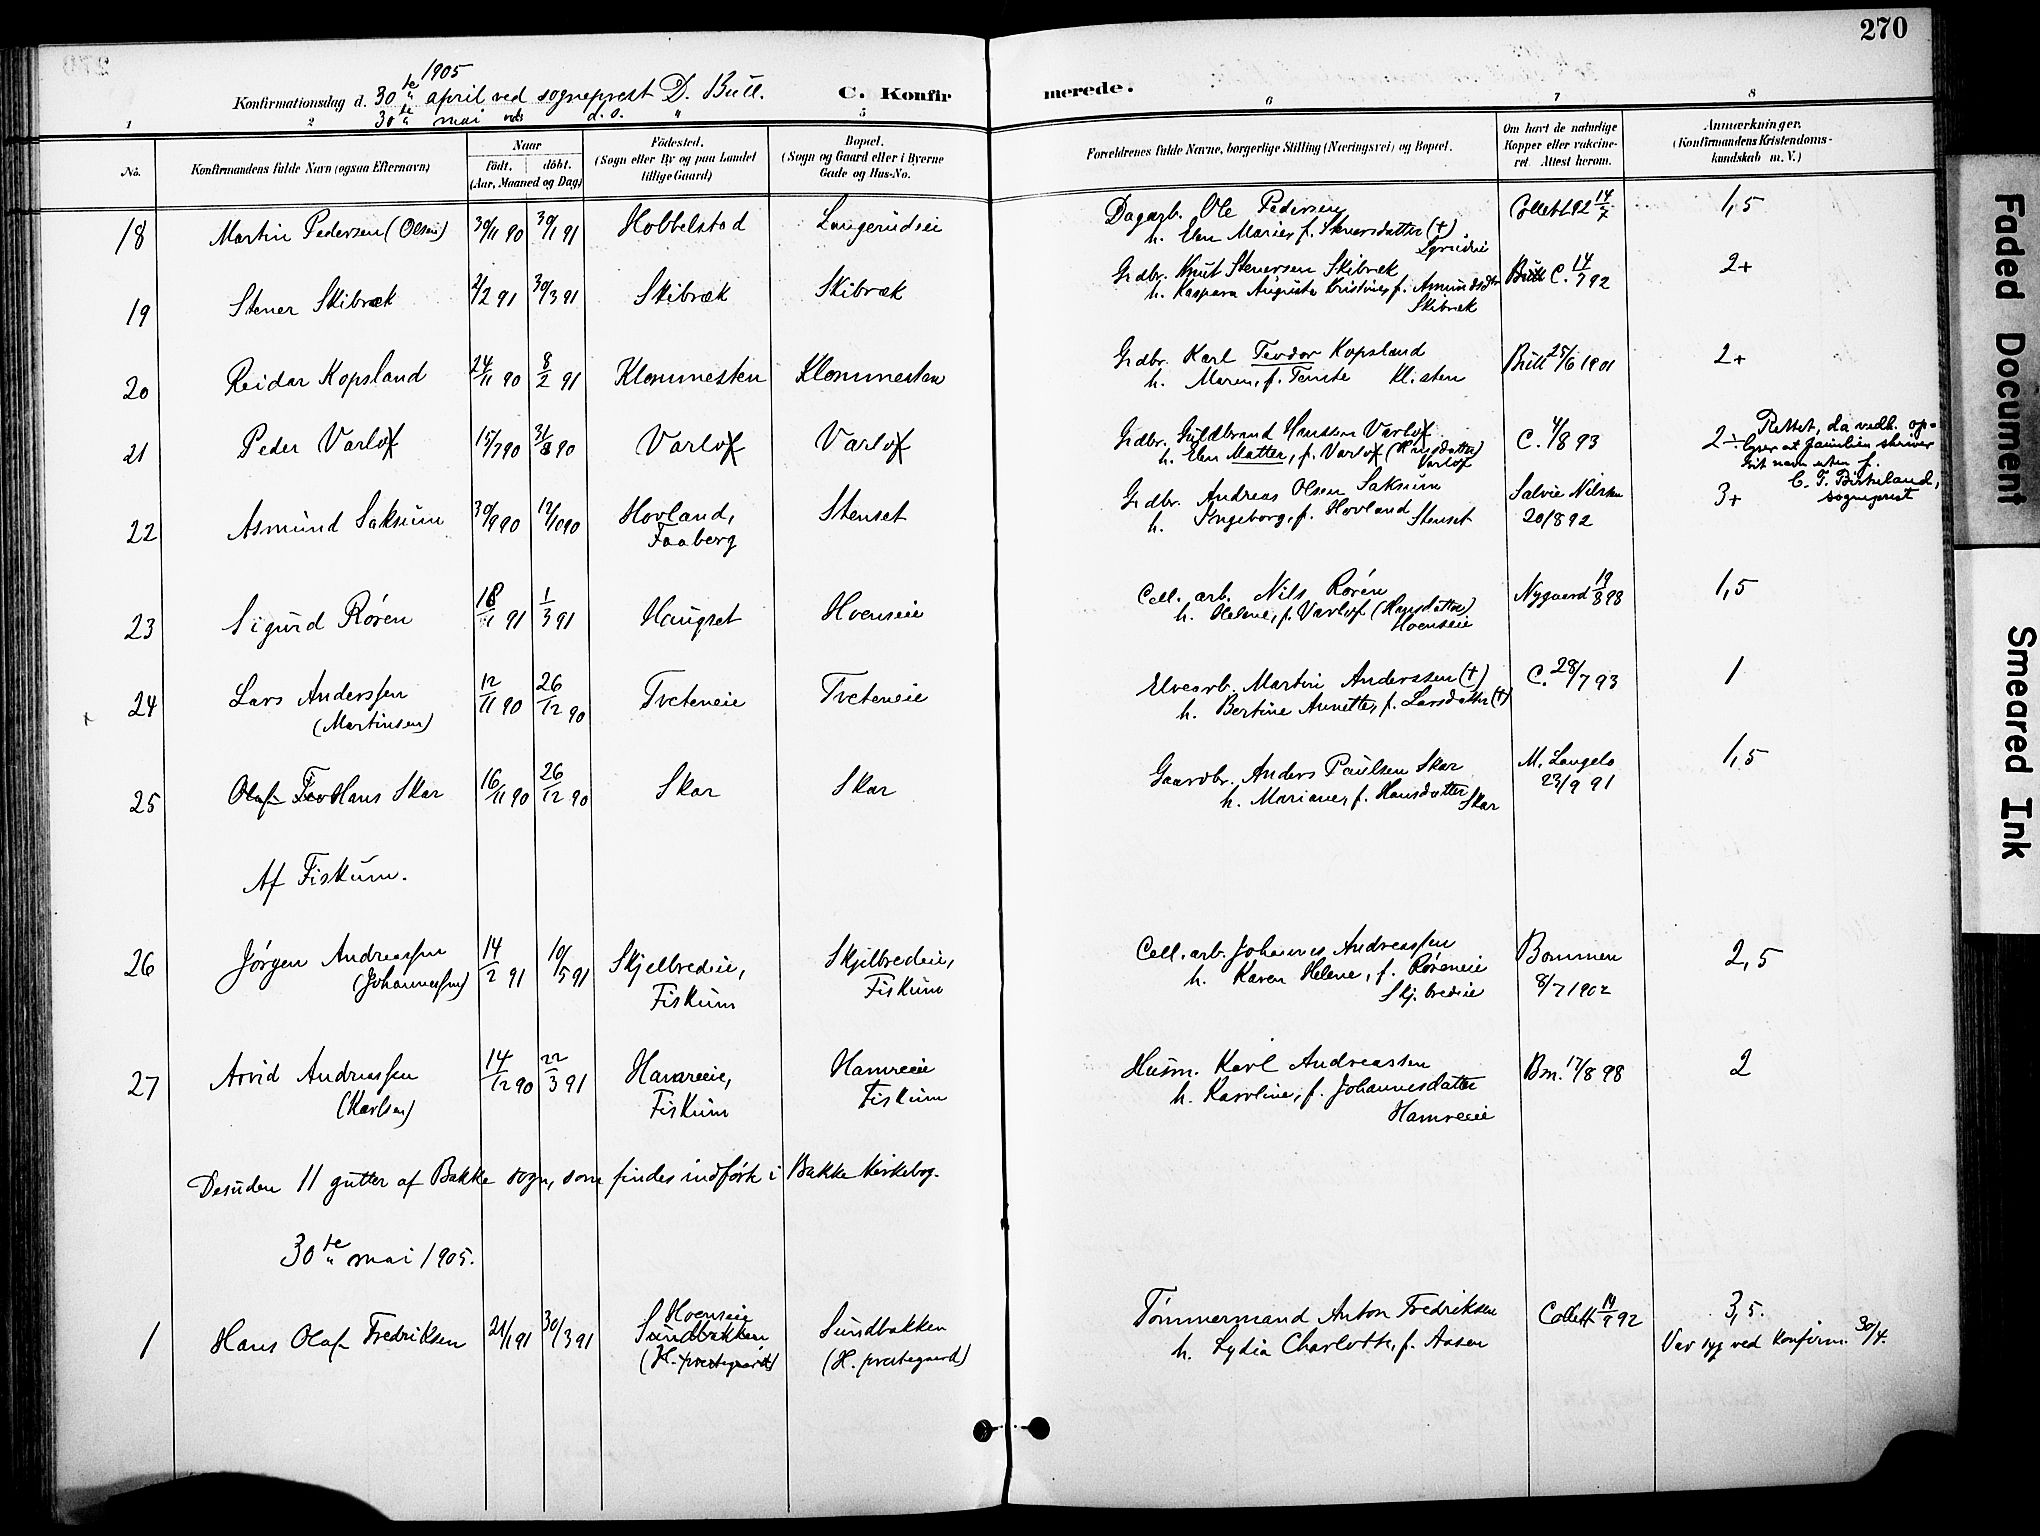 270
1905
Konfirmationsdag d. 30te april ved sogneprest D. Bull. C. Konfirmerede.
30te mai ved d.o. "
1 2 5 6 7 8
No. Konfirmandens fulde Navn (ogsaa Efternavn)
Naar født. døbt. (Aar, Maaned og Dag)
Födested. (Sogn eller By og paa Landet tillige Gaard)
Bopæl. (Sogn og Gaard eller i Byerne Gade og Hus-No.
Forældrenes fulde Navne, borgerlige Stilling (Næringsvei) og Bopæl.
Om havt de naturlige Kopper eller vakcineret. Attest herom.
Anmærkninger. (Konfirmandens Kristendomskundskab m. V.)
18 Martin Pedersen (Olsen) 30/11 90 30/1 91 Hobbelstad Langerudeie Dagarb. Ole Pedersen Collett 92 14/7 1,5
h. Elen Marie, f. Stenersdatter (†)
19 Stener Skibræk 2/2 91 30/3 91 Skibræk Skibræk Grdbr. Knut Stenersen Skibræk C. 14/7 92 2+
h. Kaspara Augusta Kristine, f. Amundsdtr
Skibræk
20 Reidar Kopsland 24/11 90 8/2 91 Klommesten Klommesten Grdbr. Karl Teodor Kopsland Bull 25/6 1901 2+
h. Maren, f. Temte Kl.sten
21 Peder Varlof 15/7 90 31/8 90 Varlof Varlof Grdbr. Guldbrand Hansen Varlof C. 4/8 93 2÷
h. Elen Matter, f. Varlof (Hansdatter)
Varlof
Rettet, da vedk. op-
lyser at familien skriver
sit navn uten f.
C. F. Birkeland,
sogneprest
22 Asmund Saksum 30/9 90 12/10 90 Hovland, Stenset Grdbr. Andreas Olsen Saksum Salvie Nilsen 3+
Faaberg h. Ingeborg, f. Hovland Stenset 20/8 92
23 Sigurd Røren 18/1 91 1/3 91 Haugset Hoenseie Cell. arb. Nils Røren Nygaard 19/8 98 1,5
h. Helene, f. Varlof (Hansdatter)
Hoenseie
24 Lars Anderssen 12/11 90 26/12 90 Tveteneie Tveteneie Elvearb. Martin Anderssen (†) C. 28/7 93 1
(Martinsen) h. Bertine Annette, f. Larsdatter (†)
25 Olaf Hans Skar 16/11 90 26/12 90 Skar Skar Gaardbr. Anders Paulsen Skar M. Langelo 1,5
h. Mariane, f. Hansdatter Skar 23/9 91
Af Fiskum.
26 Jørgen Andreassen 14/2 91 10/5 91 Skjelbredeie, Skjelbredeie, Cell. arb. Johannes Andreassen Bommen 2,5
(Johannessen) Fiskum Fiskum h. Karen Helene, f. Røreneie 8/7 1902
Skj. bredeie
27 Arvid Andreassen 14/12 90 22/3 91 Hamreeie, Hamreeie Husm. Karl Andreassen Bm. 17/8 98 2
(Karlsen) Fiskum Fiskum h. Karoline, f. Johannesdatter
Hamreeie
Desuden 11 gutter af Bakke sogn, som findes indført i Bakke Kirkebog.
30te mai 1905.
1 Hans Olaf Fredriksen 21/1 91 30/3 91 Hoenseie Sundbakken Tømmermand Anton Fredriksen Collett 14/9 92 3,5.
Sundbakken (H. prestegaard) h. Lydia Charlotte, f. Aasen Var syg ved Konfirm. 30/4.
(H. prestegaard)
Faded Document
Smeared Ink